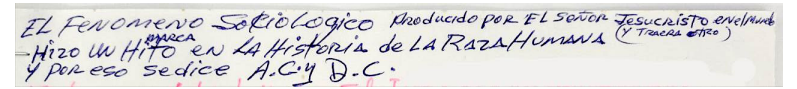 EL FENOMENO SOCIOLOGICO PRODUCIDO POR EL SEÑOR JESUCRISTO EN el Mundo
- HIZO UN HITO MARCA EN LA HISTORIA de LA RAZA HUMANA (Y TRAERA OTRO)
Y POR eso se dice A.C. y D.C.